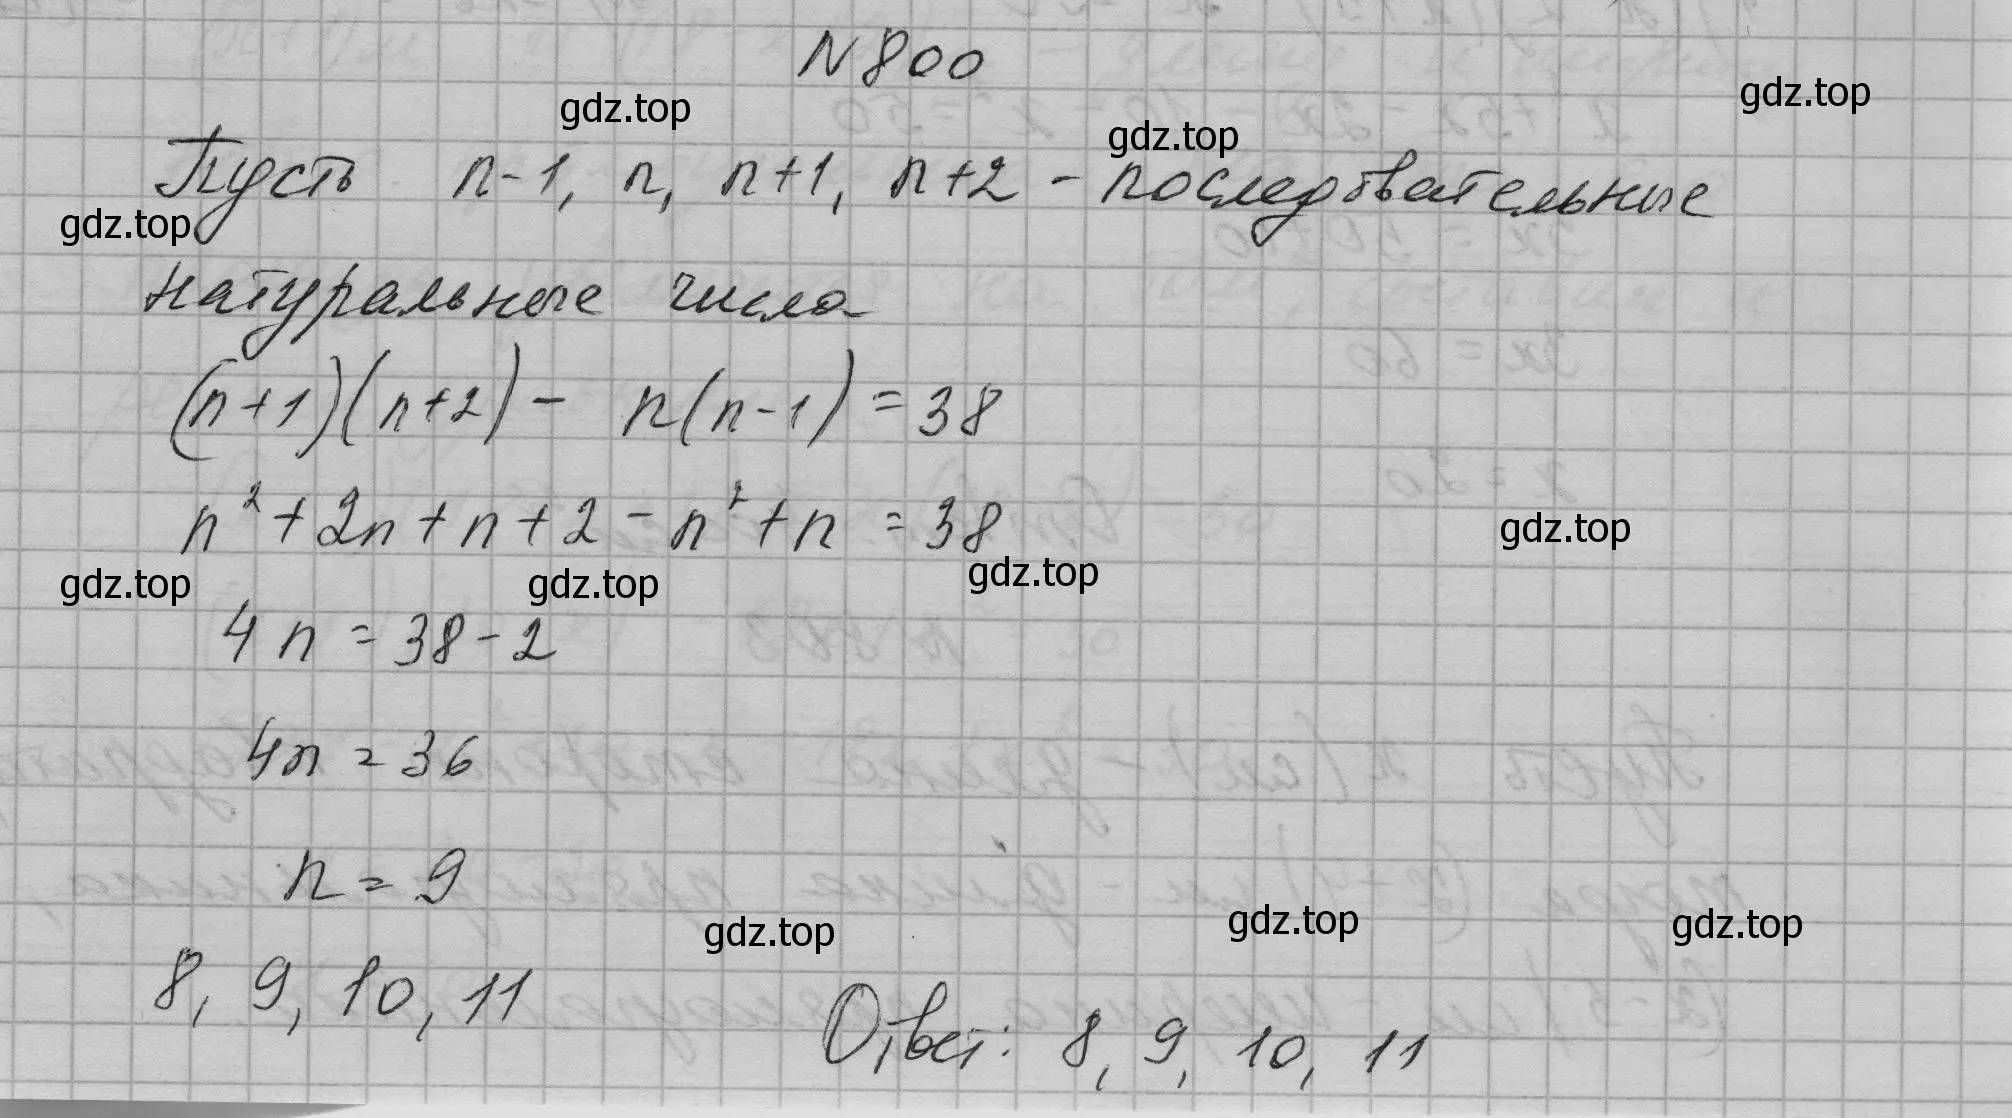 N 800
gdz.top
gdz.top
gdz.top
Пусть n-1, n, n+1, n+2 - последовательные
gdz.top
натуральные числа
(n+1)(n+2) - n(n-1) = 38
n² + 2n + n + 2 - n² + n = 38
gdz.top
gdz.top
gdz.top
gdz.top
4n = 38 - 2
4n = 36
n = 9
gdz.top
gdz.top
gdz.top
8, 9, 10, 11
Ответ: 8, 9, 10, 11